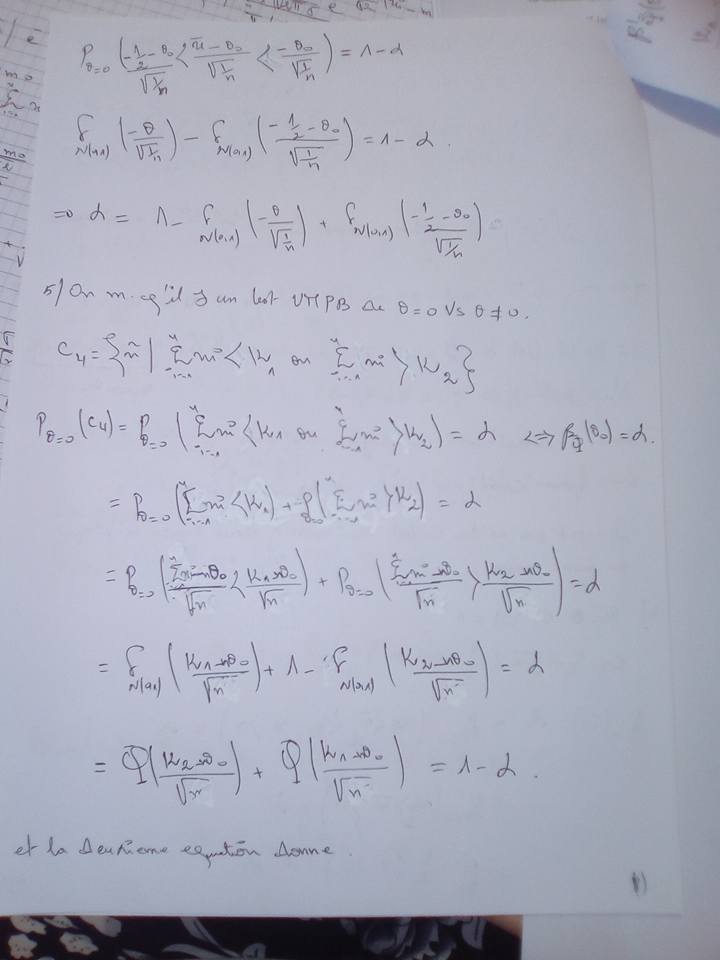 P_{θ=0} ( (-1/2 - θ₀)/√(1/n) < (x̄ - θ₀)/√(1/n) < (-θ₀)/√(1/n) ) = 1 - α
F_{N(0,1)} ( -θ/√(1/n) ) - F_{N(0,1)} ( (-1/2 - θ₀)/√(1/n) ) = 1 - α.
=> α = 1 - F_{N(0,1)} ( -θ/√(1/n) ) + F_{N(0,1)} ( (-1/2 - θ₀)/√(1/n) )
5/ On m. q'il ∃ un test UMPB de θ=0 Vs θ≠0.
C₄ = { x̃ | Σ_{i=1}^n xi < K₁ ou Σ_{i=1}^n xi > K₂ }
P_{θ=0}(C₄) = P_{θ=0} ( Σ_{i=1}^n xi < K₁ ou Σ_{i=1}^n xi > K₂ ) = α <=> β_φ(θ₀) = α.
= P_{θ=0} ( Σ_{i=1}^n xi < K₁ ) + P_{θ=0} ( Σ_{i=1}^n xi > K₂ ) = α
= P_{θ=0} ( (Σ_{i=1}^n xi - nθ₀)/√n < (K₁ - nθ₀)/√n ) + P_{θ=0} ( (Σ_{i=1}^n xi - nθ₀)/√n > (K₂ - nθ₀)/√n ) = α
= F_{N(0,1)} ( (K₁ - nθ₀)/√n ) + 1 - F_{N(0,1)} ( (K₂ - nθ₀)/√n ) = α
= Φ( (K₂ - nθ₀)/√n ) + Φ( (K₁ - nθ₀)/√n ) = 1 - α.
et la deuxieme equation donne.